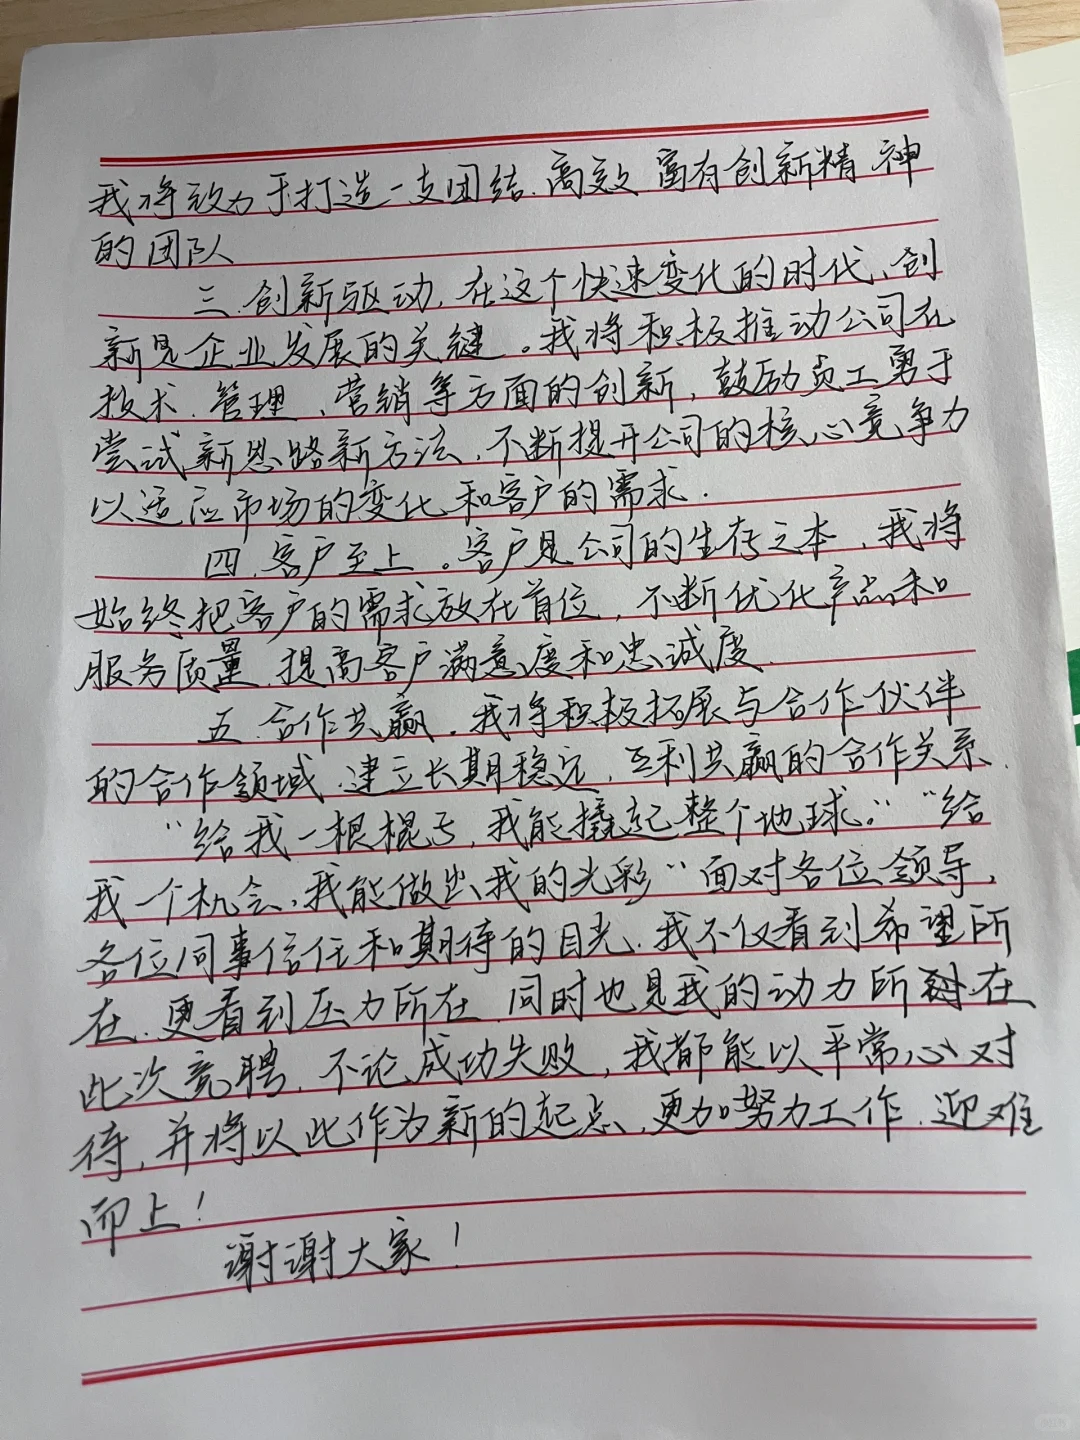 我将致力于打造一支团结、高效、富有创新精神
的团队
三、创新驱动，在这个快速变化的时代、创
新是企业发展的关键。我将积极推动公司在
技术、管理、营销等方面的创新，鼓励员工勇于
尝试新思路新方法，不断提升公司的核心竞争力
以适应市场的变化和客户的需求.
四、客户至上。客户是公司的生存之本，我将
始终把客户的需求放在首位，不断优化产品和
服务质量，提高客户满意度和忠诚度
五、合作共赢。我将积极拓展与合作伙伴
的合作领域，建立长期稳定，互利共赢的合作关系.
“给我一根棍子，我能撬起整个地球。”“给
我一个机会，我能做出我的光彩“面对各位领导，
各位同事信任和期待的目光，我不仅看到希望所
在，更看到压力所在，同时也是我的动力所在
此次竞聘，不论成功失败，我都能以平常心对
待，并将以此作为新的起点，更加努力工作，迎难
而上！
谢谢大家！